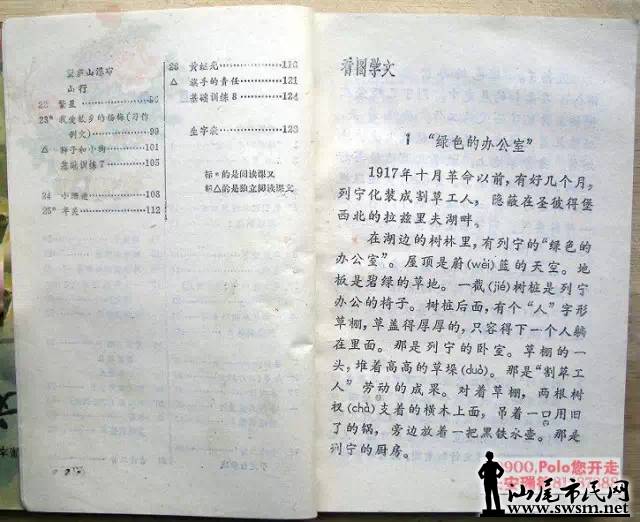 山行
22 繁星
23* 我爱故乡的杨梅(习作
例文) 99
△ 狮子和小狗 101
基础训练7 105
24 小珊迪 108
25* 半英 112
26 黄继光 116
△ 旗手的责任 121
基础训练8 124
生字表 128
标*的是阅读课文
标△的是独立阅读课文
看图学文
1 “绿色的办公室”
1917年十月革命以前，有好几个月，
列宁化装成割草工人， 隐蔽在圣彼得堡
西北的拉兹里夫湖畔。
在湖边的树林里，有列宁的“绿色的
办公室”。屋顶是蔚(wèi)蓝的天空。地
板是碧绿的草地。一截(jié)树桩是列宁
办公的椅子。树桩后面，有个“人”字形
草棚，草盖得厚厚的，只容得下一个人躺
在里面。那是列宁的卧室。草棚的一
头，堆着高高的草垛(duò)。那是“割草工
人”劳动的成果。对着草棚，两根树
杈(chà)支着的横木上面，吊着一口用旧
了的锅，旁边放着一把黑铁水壶。那是
列宁的厨房。
900,Polo您开走
汕尾市民网
www.swsm.net